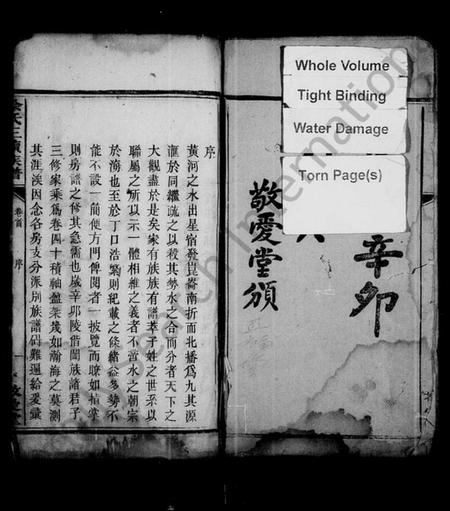 Whole Volume
Tight Binding
Water Damage
Torn Page(s)
辛卯
敬愛堂頒
序
黃河之水出星宿發崑崙南折而北播為九其源
滙於同繼疏之以殺其勢水之合而分者天下之
大觀盡於是矣家有族族有譜萃子姓之世系以
聯屬之所以示一體相維之義者不啻水之朝宗
於海也至於丁口浩繁則紀載之條緒益多勢不
能不設一簡使方門俾閱者一披覽而瞭如指掌
則房譜之修其急需也歲辛卯陵偕闔族諸君子
三修家乘為卷四十積軸盈架幾如瀚海之莫測
其涯涘因念各房支分派別族譜碼難遍給爰彙
氏三修族譜
卷首
序